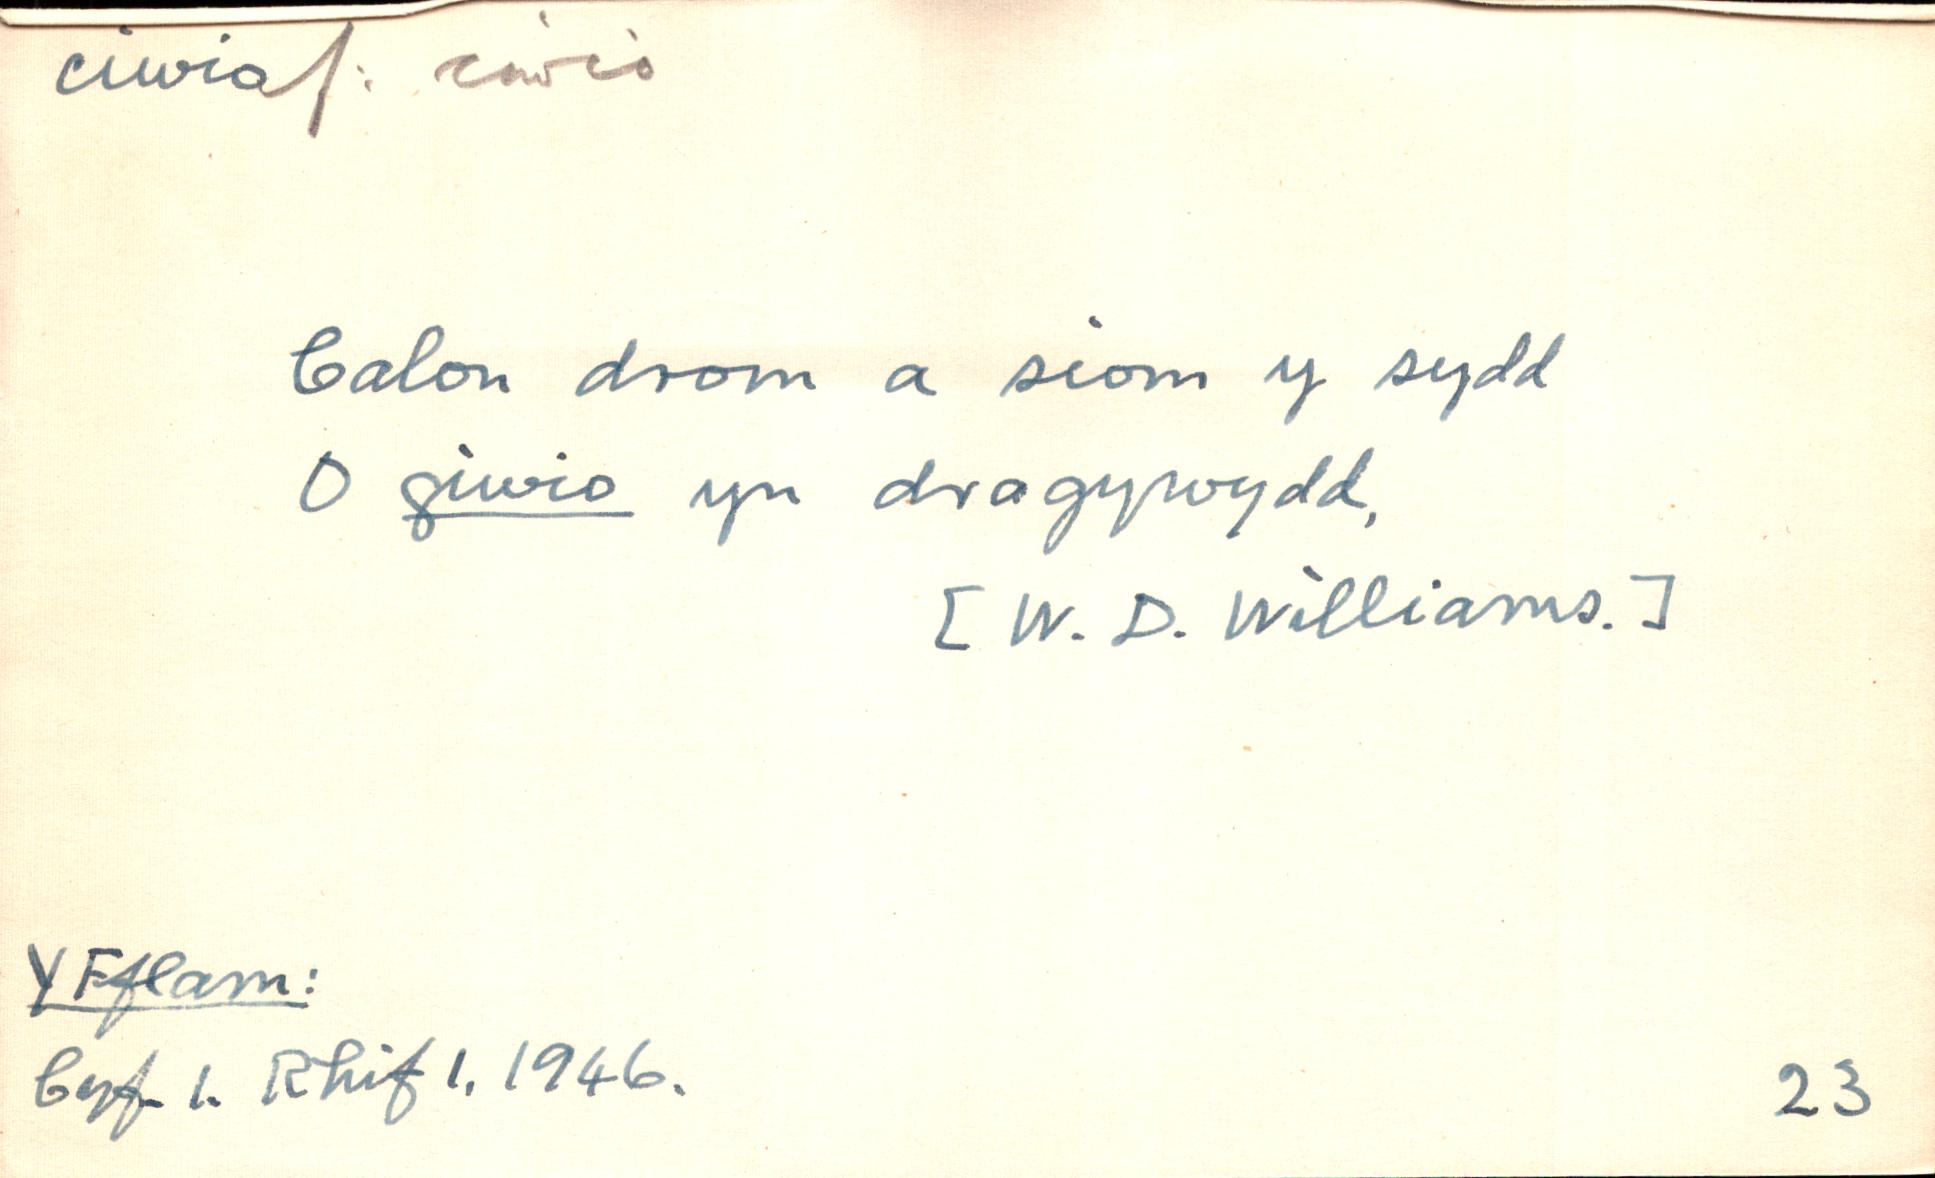 ciwiaf: ciwio
Calon drom a siom y sydd
O giwio yn dragywydd,
[W. D. Williams.]
Y Fflam:
Cyf. 1. Rhif 1, 1946.
23